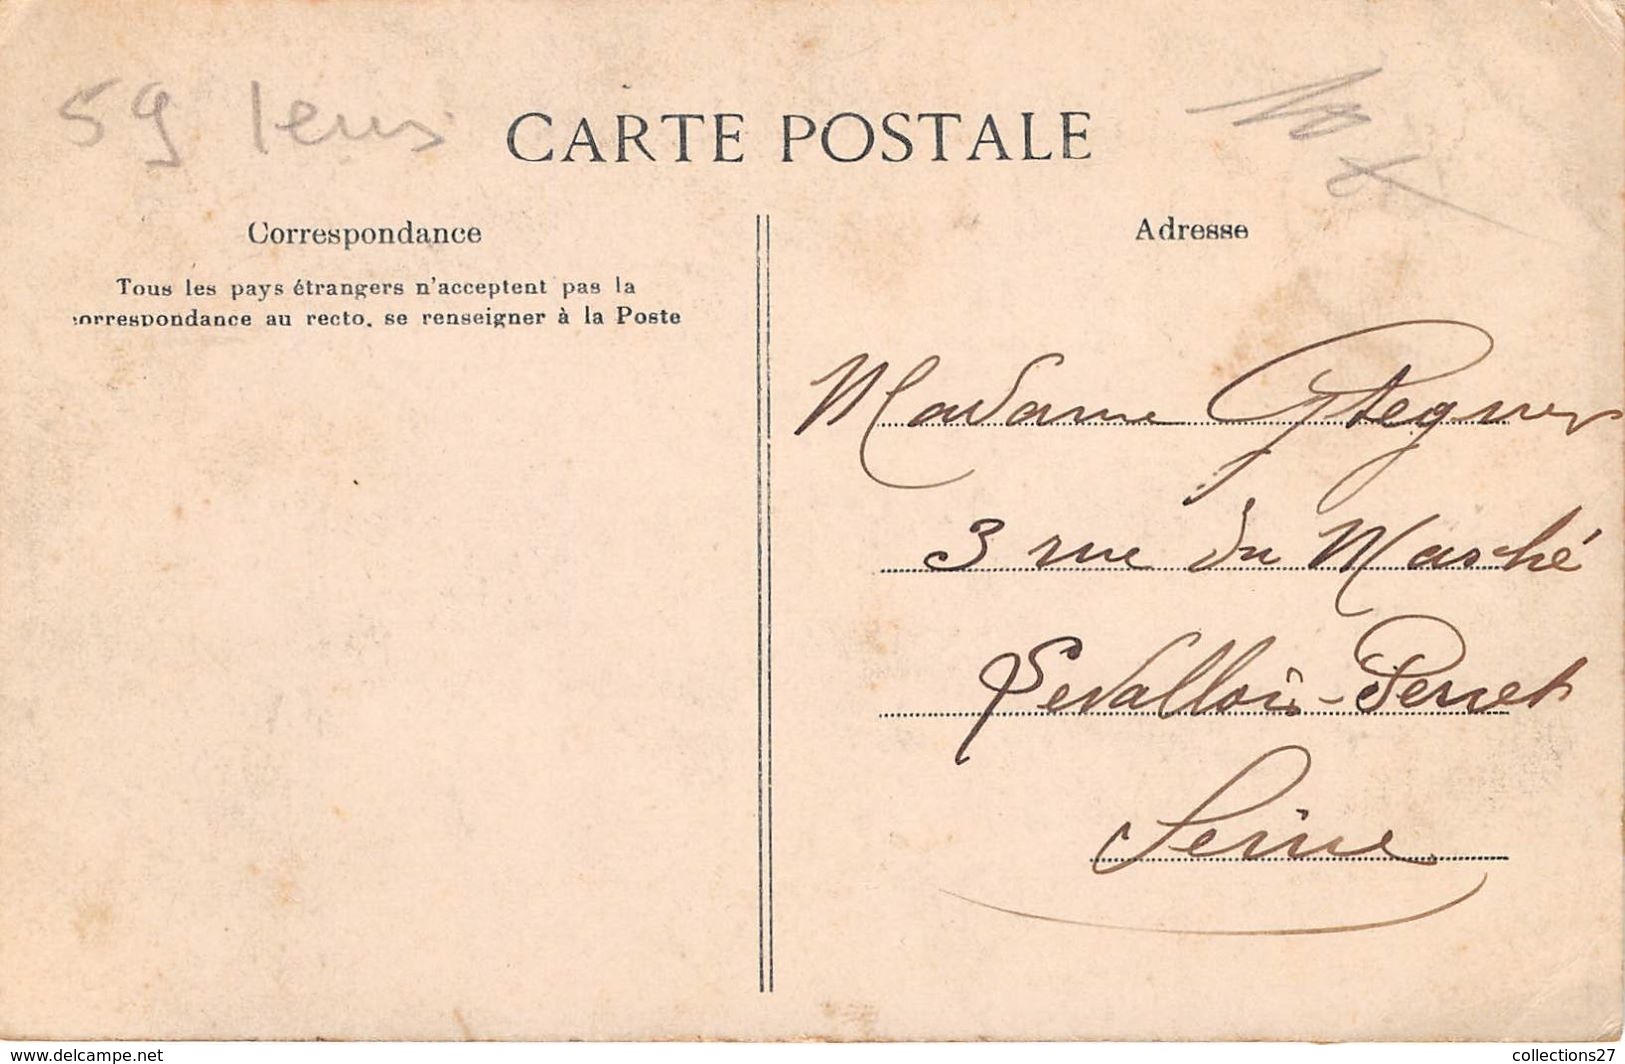 59 lens
CARTE POSTALE
Correspondance
Tous les pays étrangers n'acceptent pas la
correspondance au recto, se renseigner à la Poste
Adresse
Madame
3 rue du Marché
Levallois-Perret
Seine
www.delcampe.net
collections27